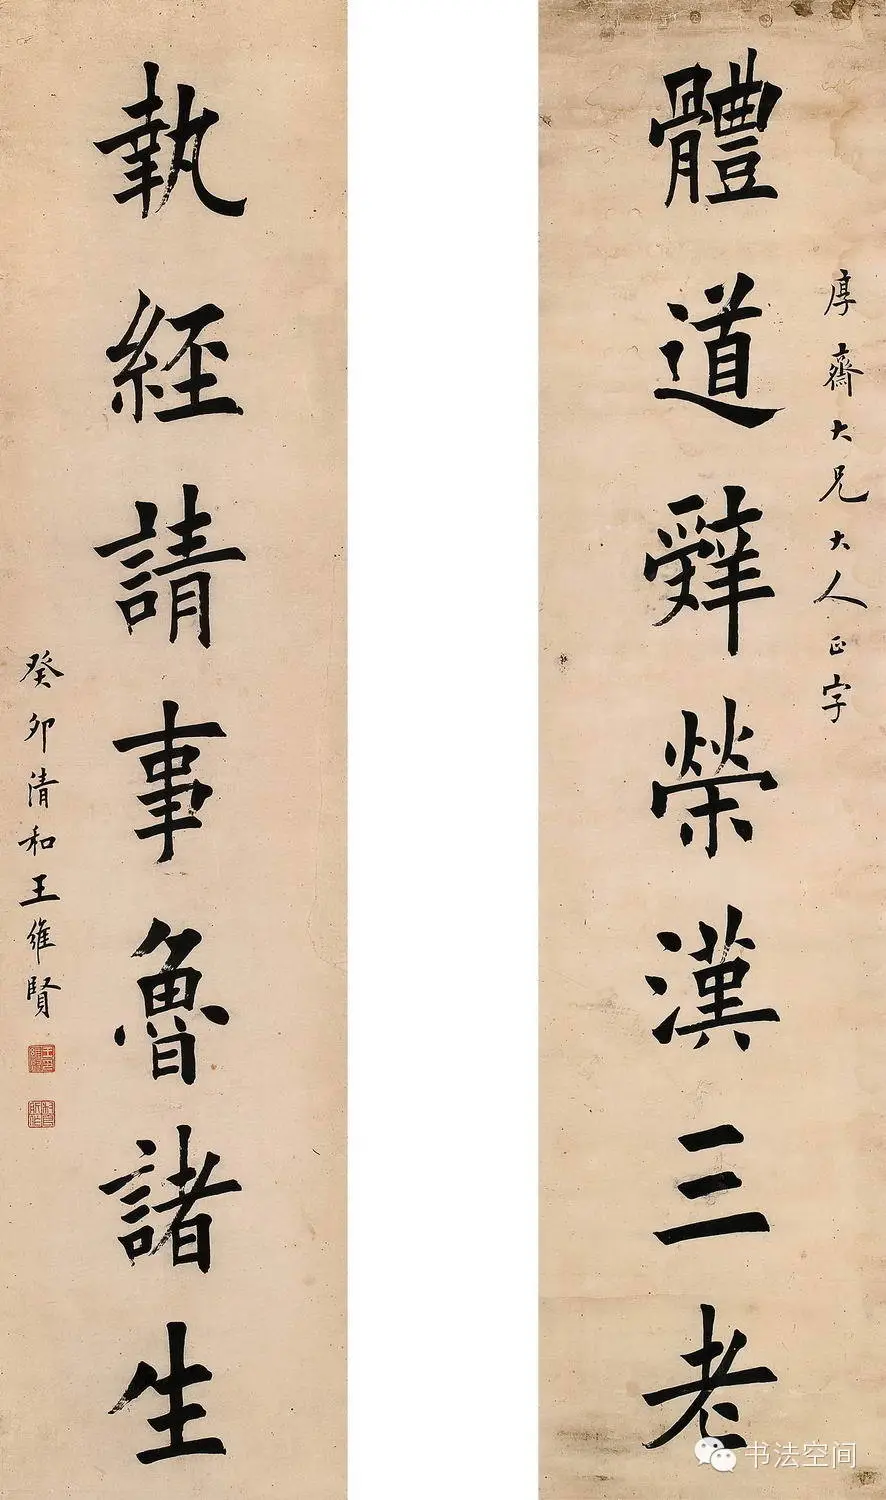 厚齋大兄大人正字
體道辤榮漢三老
執經請事魯諸生
癸卯清和王維賢
书法空间